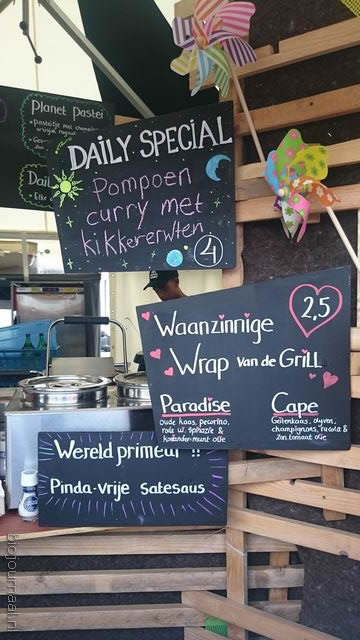 Planet Pastei
DAILY SPECIAL
Pompoen
curry met
kikkererwten
4
Waanzinnige
2,5
Wrap van de Grill
Paradise
oude kaas, pecorino,
rode ui, spinazie &
koriander-munt olie
Cape
Geitenkaas, olijven,
champignons, rucola &
zon.tomaat olie
Wereld primeur !!
Pinda-vrije satesaus
biojournaal.nl